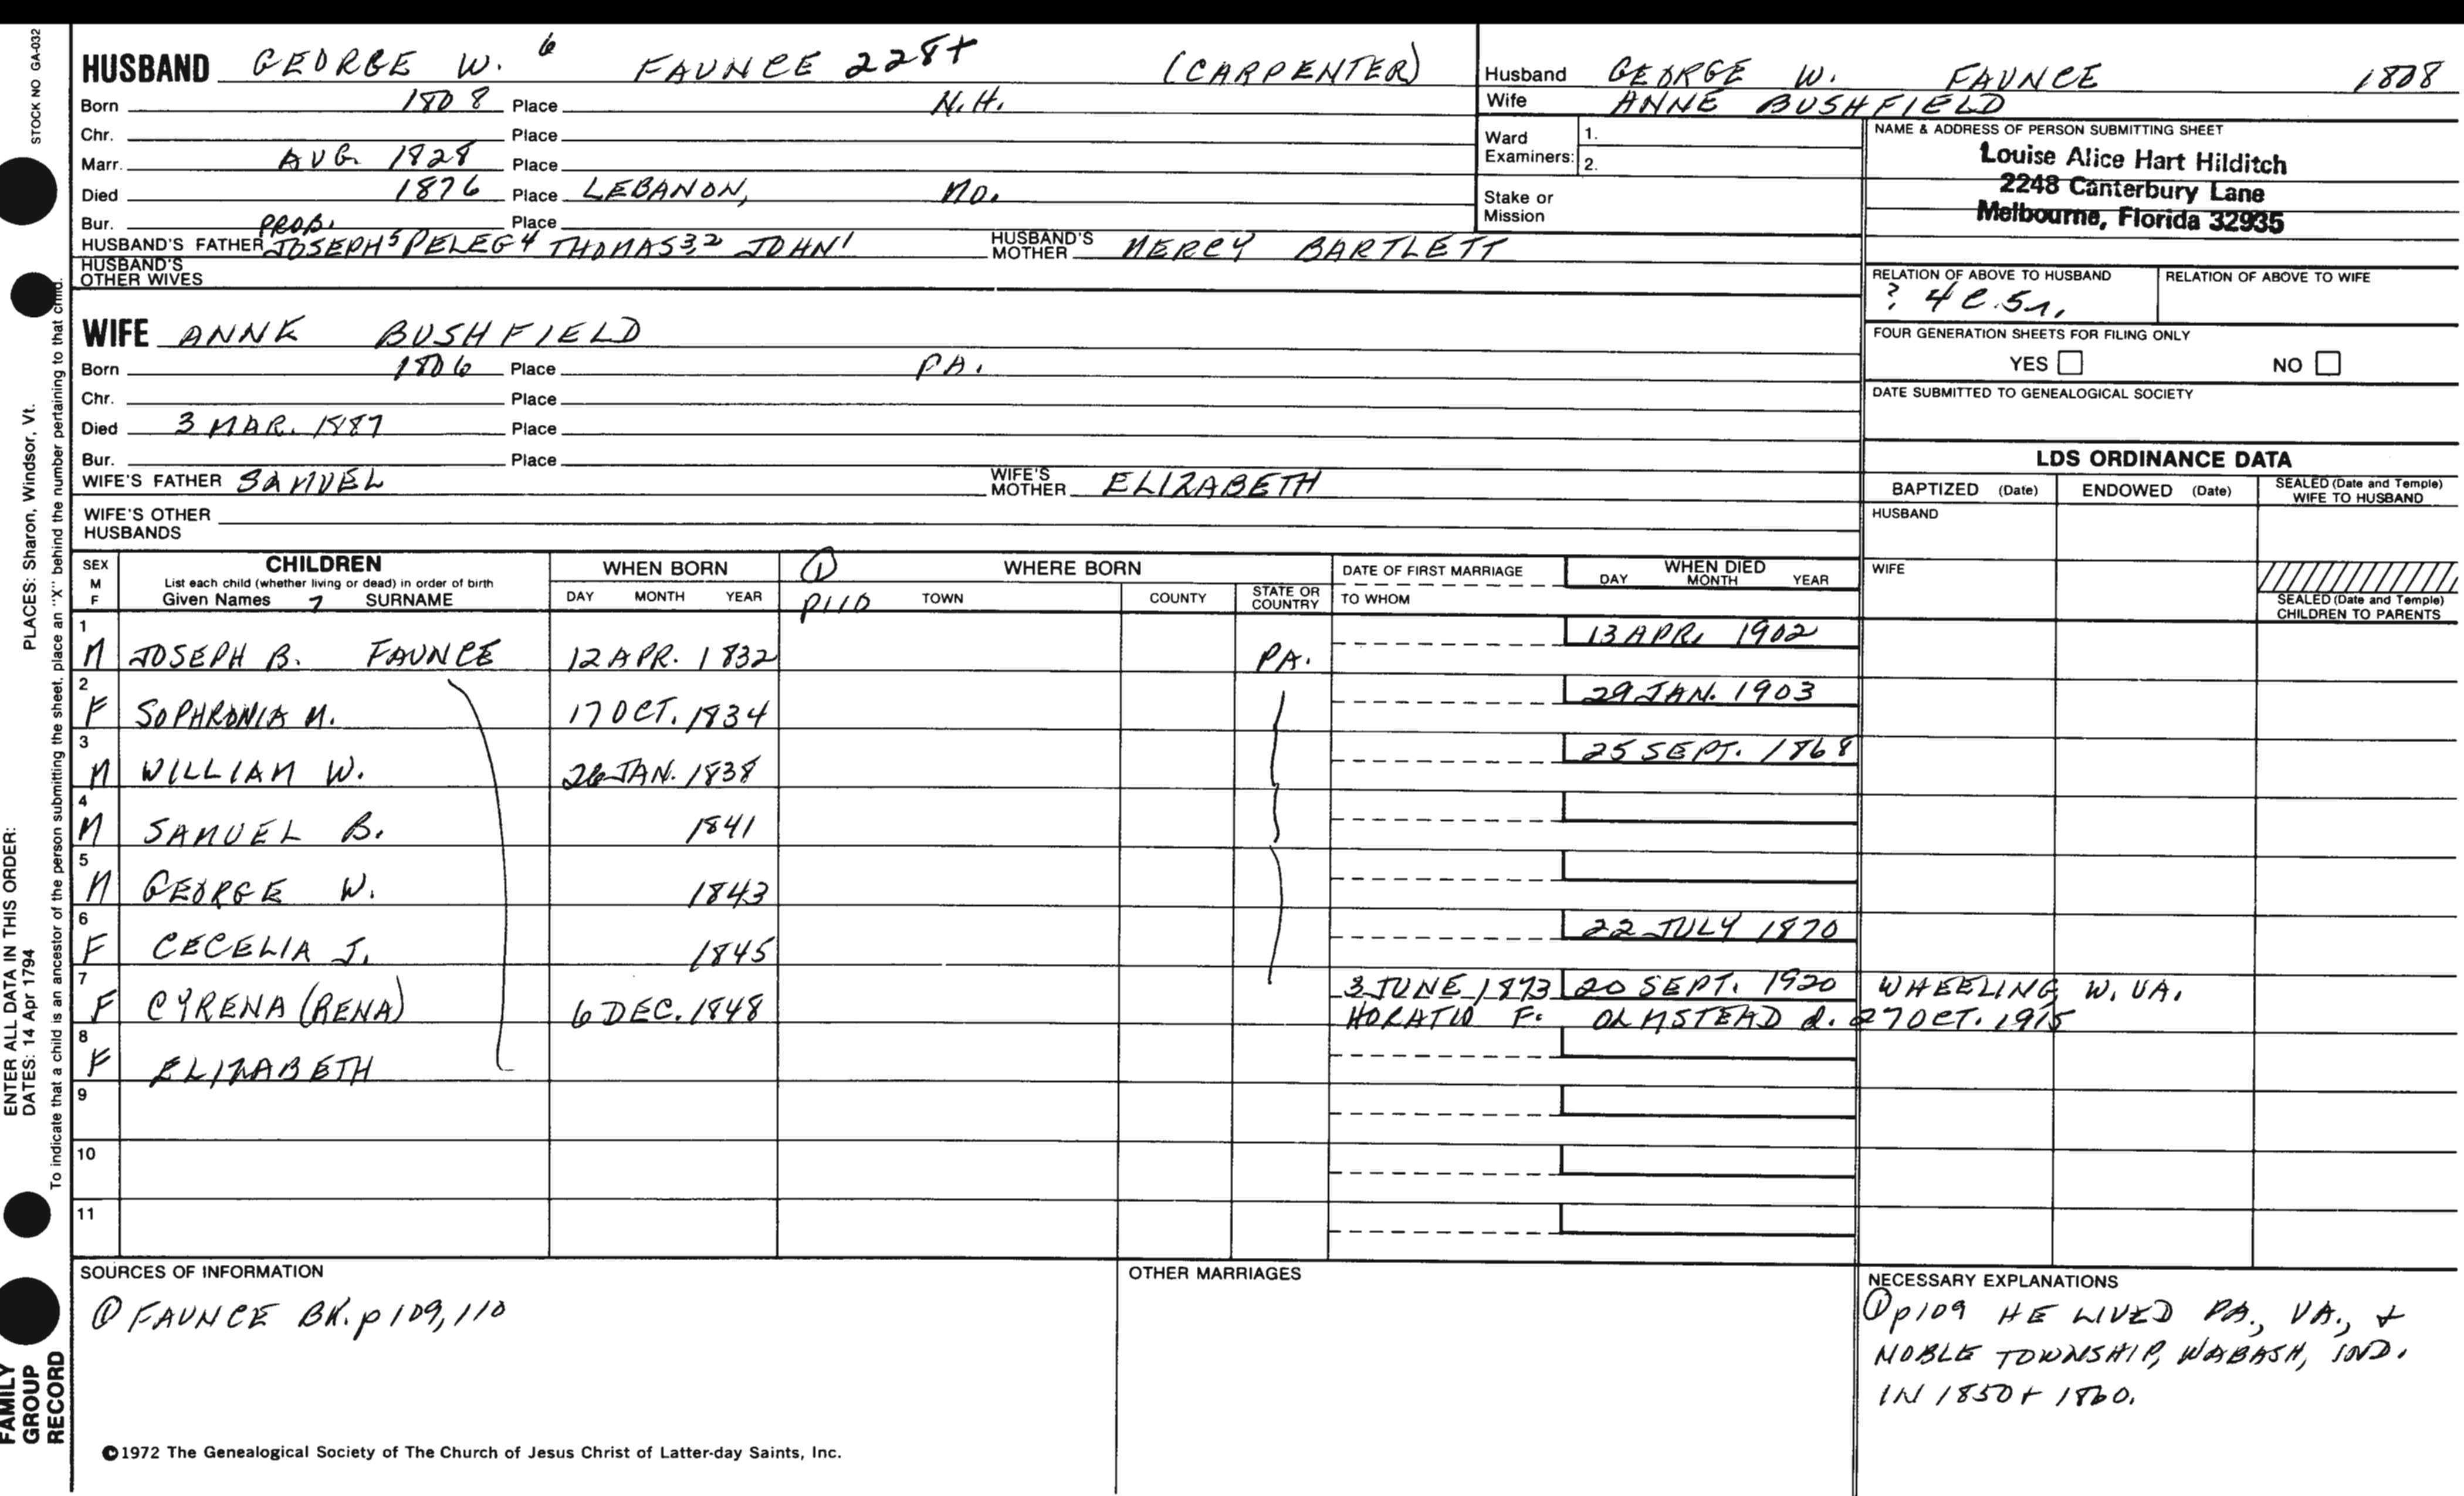 STOCK NO GA-032
HUSBAND GEORGE W. 6 FAUNCE 228+ (CARPENTER)
Born 1808 Place N.H.
Chr. Place
Marr. AUG. 1828 Place
Died 1876 Place LEBANON, MO.
Bur. Place
HUSBAND'S FATHER PROB. JOSEPH5 PELEG4 THOMAS3,2 JOHN1 HUSBAND'S MOTHER MERCY BARTLETT
HUSBAND'S OTHER WIVES
WIFE ANNE BUSHFIELD
Born 1806 Place PA.
Chr. Place
Died 3 MAR. 1887 Place
Bur. Place
WIFE'S FATHER SAMUEL WIFE'S MOTHER ELIZABETH
WIFE'S OTHER HUSBANDS
Husband GEORGE W. FAUNCE 1808
Wife ANNE BUSHFIELD
Ward Examiners: 1.
2.
Stake or Mission
NAME & ADDRESS OF PERSON SUBMITTING SHEET
Louise Alice Hart Hilditch
2248 Canterbury Lane
Melbourne, Florida 32935
RELATION OF ABOVE TO HUSBAND RELATION OF ABOVE TO WIFE
? 4 C. 5 r.
FOUR GENERATION SHEETS FOR FILING ONLY
YES NO
DATE SUBMITTED TO GENEALOGICAL SOCIETY
LDS ORDINANCE DATA
BAPTIZED (Date) ENDOWED (Date) SEALED (Date and Temple) WIFE TO HUSBAND
HUSBAND
WIFE
SEALED (Date and Temple) CHILDREN TO PARENTS
SEX M F CHILDREN WHEN BORN ① WHERE BORN DATE OF FIRST MARRIAGE WHEN DIED
List each child (whether living or dead) in order of birth
Given Names 7 SURNAME DAY MONTH YEAR P110 TOWN COUNTY STATE OR COUNTRY TO WHOM DAY MONTH YEAR
1 M JOSEPH B. FAUNCE 12 APR. 1832 PA. 13 APR. 1902
2 F SOPHRONIA M. 17 OCT. 1834 29 JAN. 1903
3 M WILLIAM W. 26 JAN. 1838 25 SEPT. 1868
4 M SAMUEL B. 1841
5 M GEORGE W. 1843
6 F CECELIA J. 1845 22 JULY 1870
7 F CYRENA (RENA) 6 DEC. 1848 3 JUNE 1873 20 SEPT. 1920 WHEELING W. VA.
HORATIO F. OLMSTEAD d. 27 OCT. 1915
8 F ELIZABETH
9
10
11
SOURCES OF INFORMATION
① FAUNCE BK. p 109, 110
OTHER MARRIAGES
NECESSARY EXPLANATIONS
① p109 HE LIVED PA., VA., +
NOBLE TOWNSHIP, WABASH, IND.
IN 1850 + 1860.
©1972 The Genealogical Society of The Church of Jesus Christ of Latter-day Saints, Inc.
ENTER ALL DATA IN THIS ORDER:
DATES: 14 Apr 1794 PLACES: Sharon, Windsor, Vt.
To indicate that a child is an ancestor of the person submitting the sheet, place an "X" behind the number pertaining to that child.
FAMILY
GROUP
RECORD